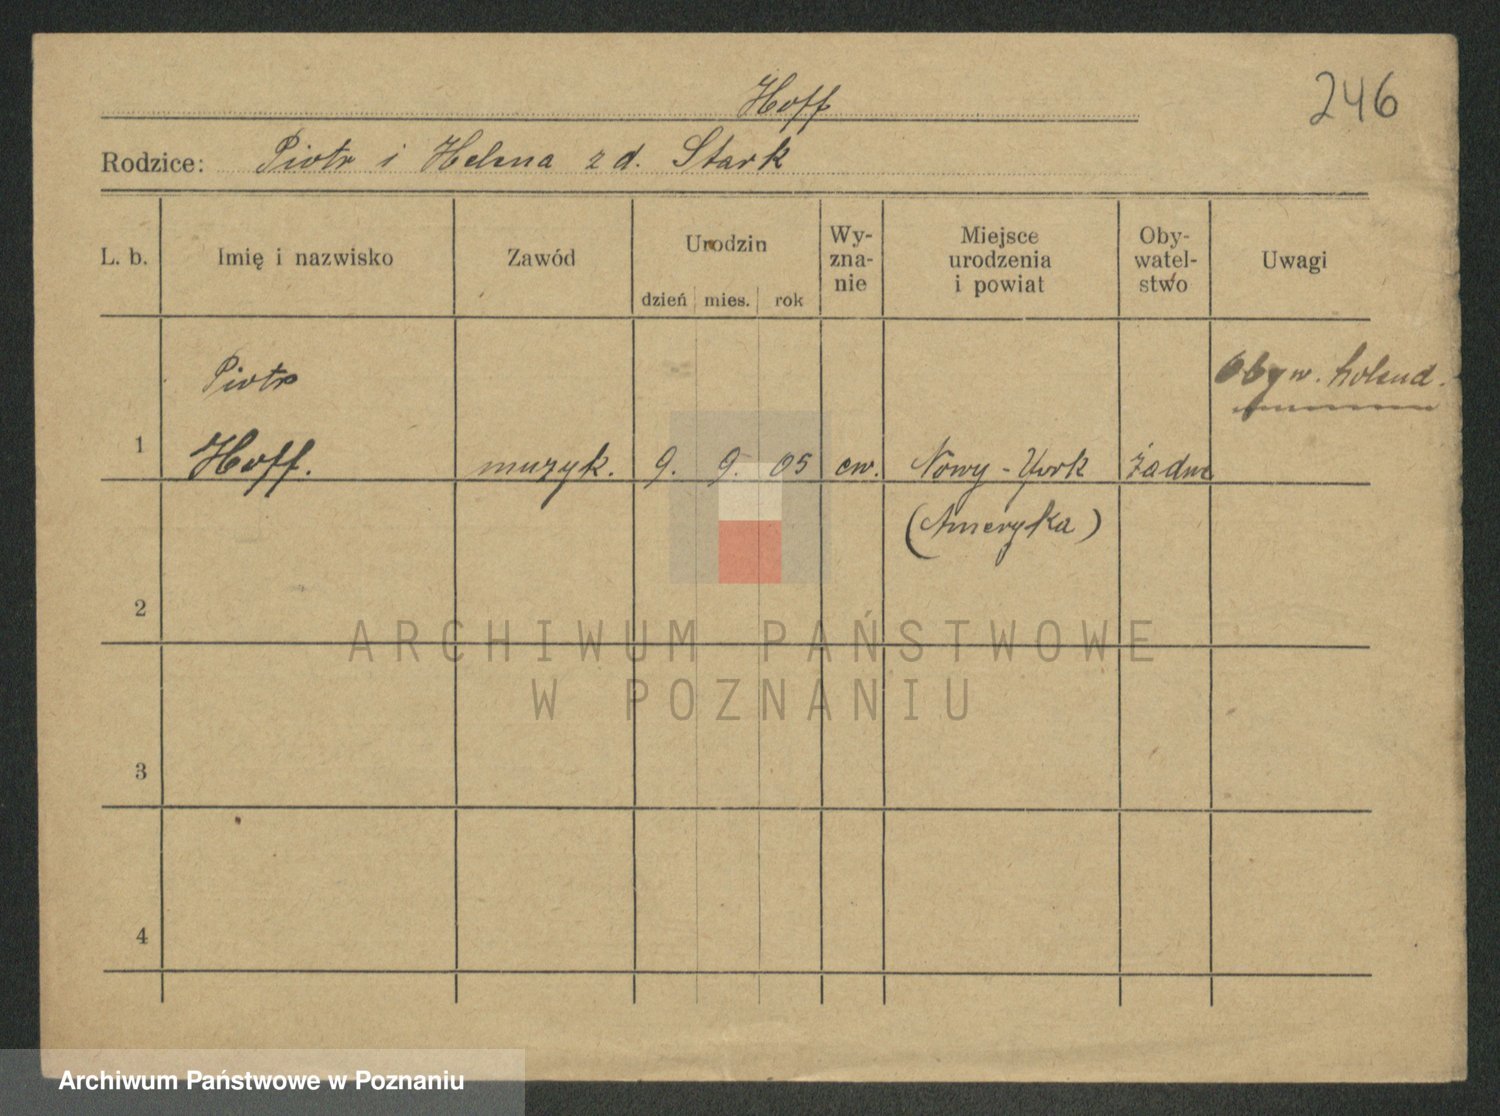 Hoff
246
Rodzice: Piotr i Helena z d. Stark
L. b.
Imię i nazwisko
Zawód
Urodzin
dzień mies. rok
Wy-
zna-
nie
Miejsce
urodzenia
i powiat
Oby-
watel-
stwo
Uwagi
Piotr
Obyw. holend.
1 Hoff. muzyk. 9. 9. 05 ew. Nowy-York żadne
(Ameryka)
2
ARCHIWUM PAŃSTWOWE
W POZNANIU
3
4
Archiwum Państwowe w Poznaniu